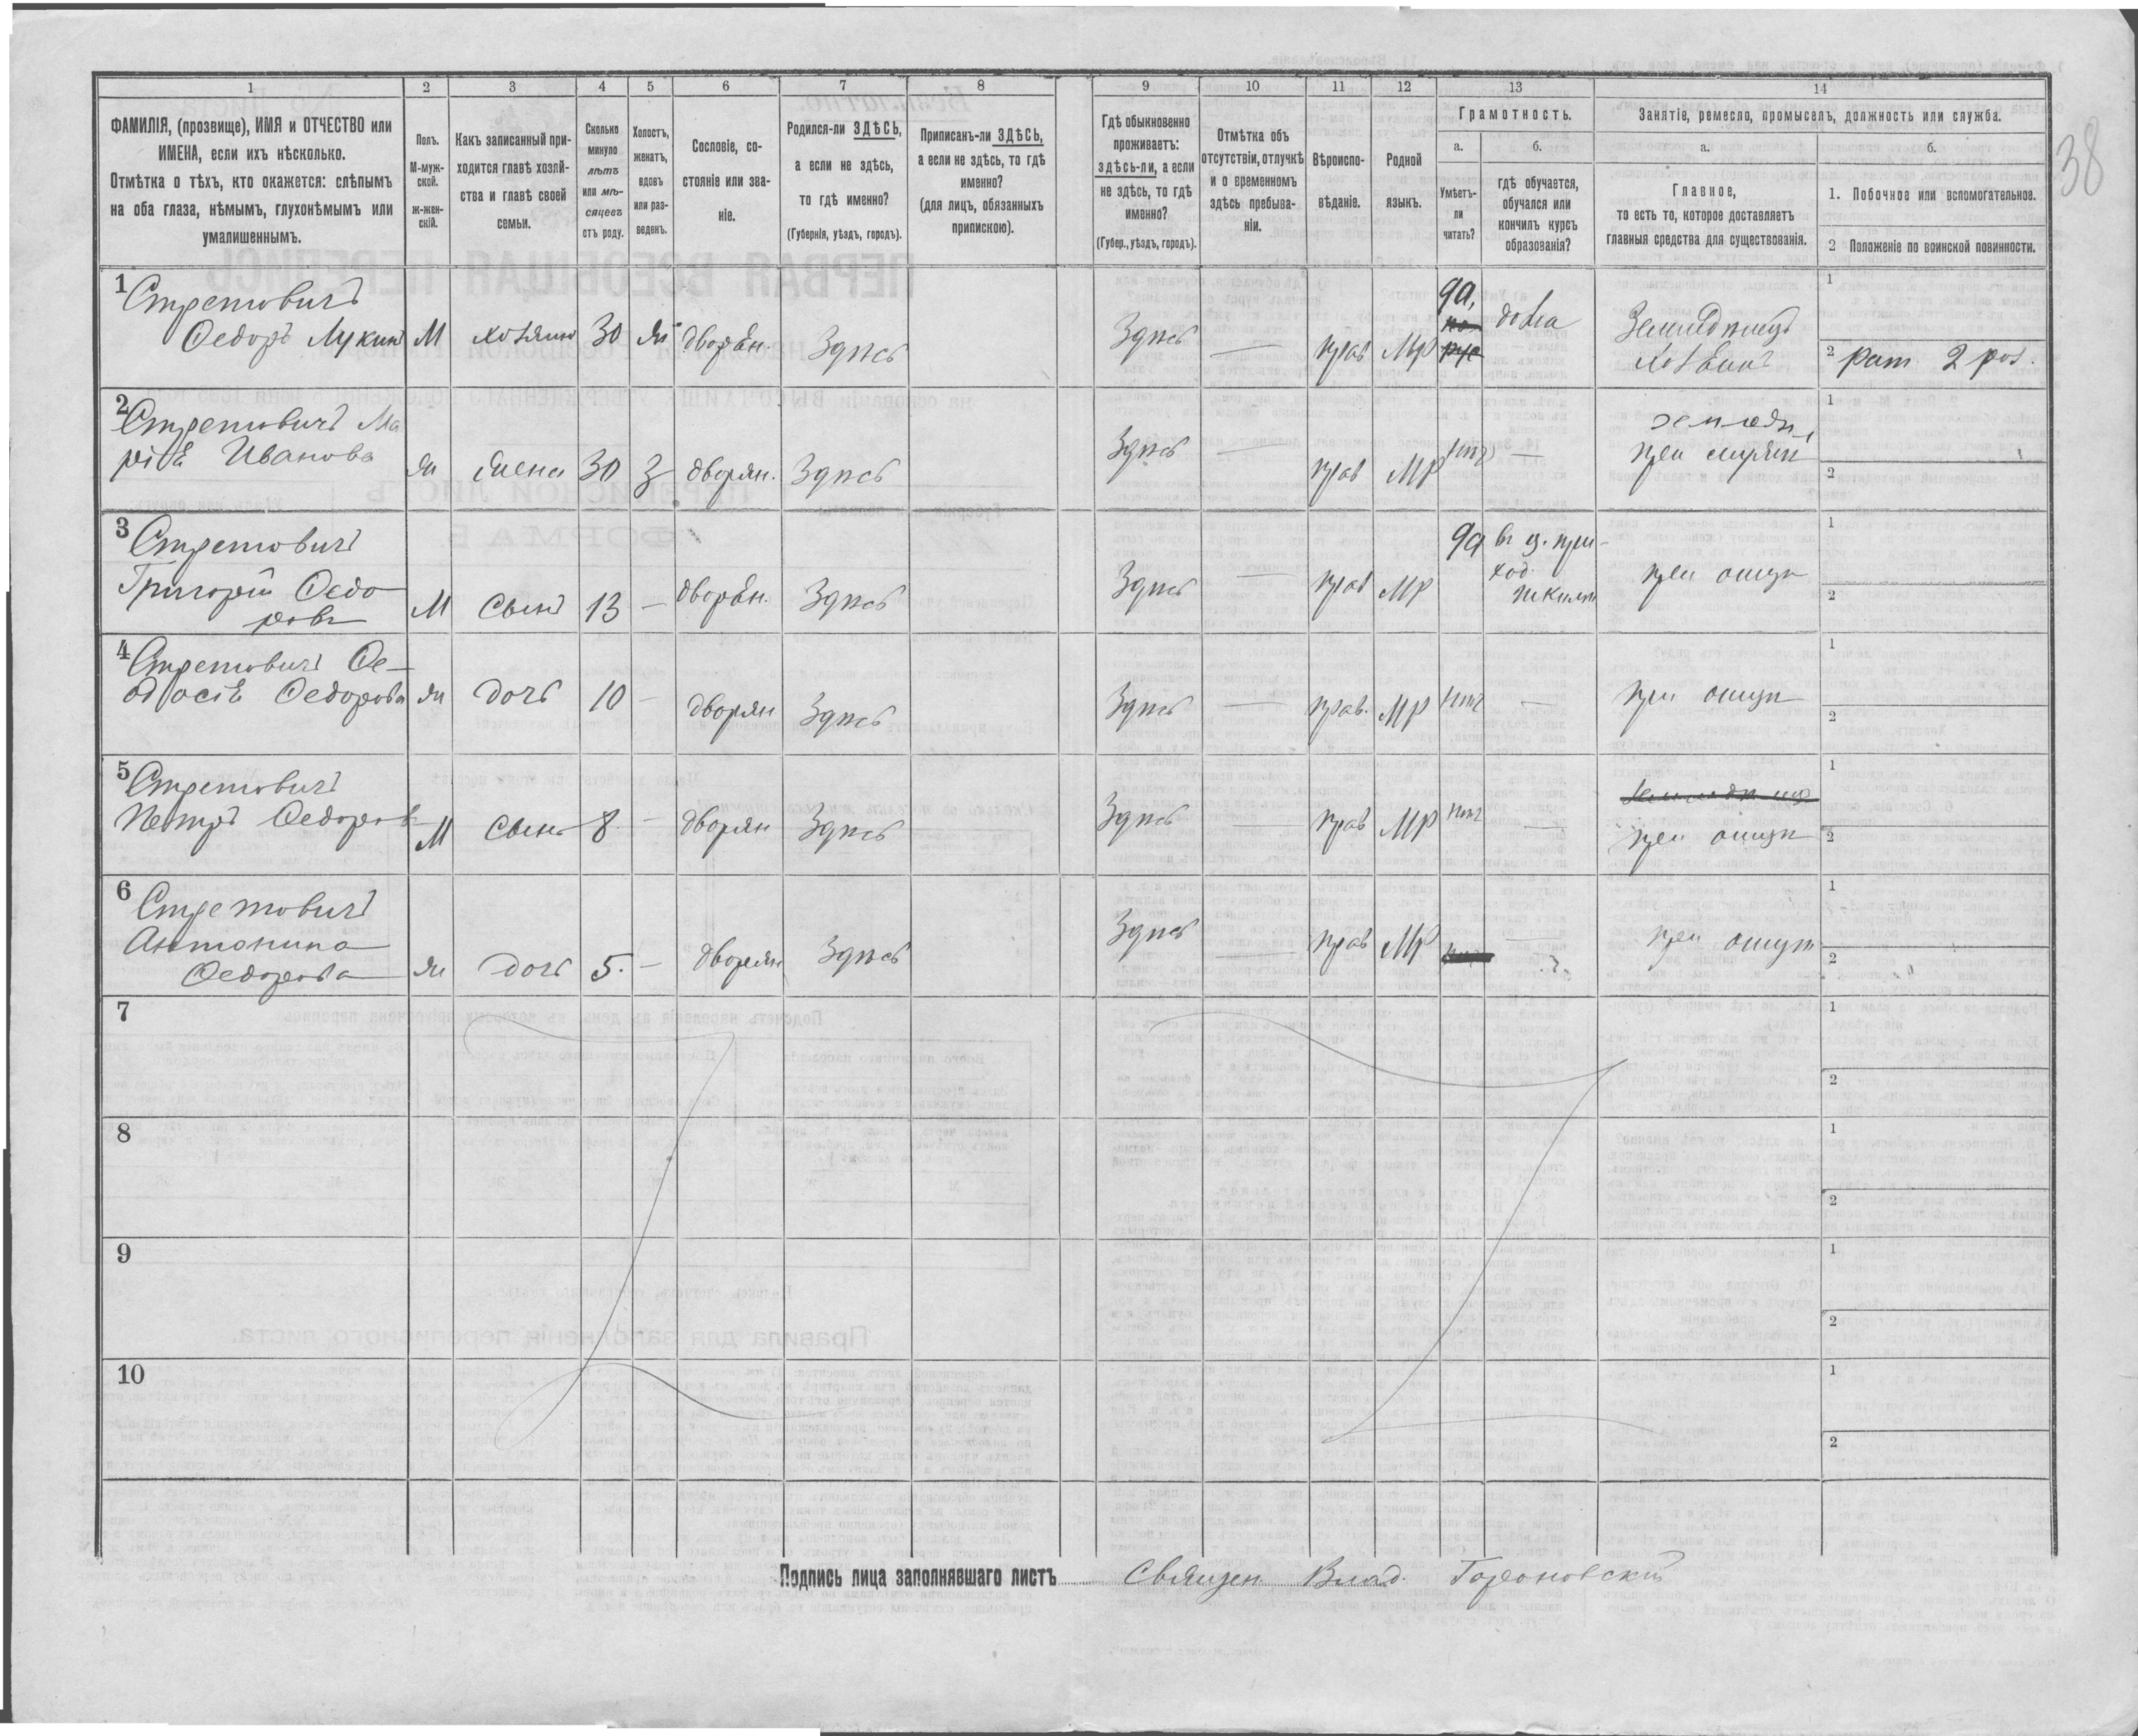 38
1 2 3 4 5 6 7 8 9 10 11 12 13 14
ФАМИЛІЯ, (прозвище), ИМЯ и ОТЧЕСТВО или
ИМЕНА, если ихъ нѣсколько.
Отмѣтка о тѣхъ, кто окажется: слѣпымъ
на оба глаза, нѣмымъ, глухонѣмымъ или
умалишеннымъ.
Полъ.
М-муж-
ской.
ж-жен-
скій.
Какъ записанный при-
ходится главѣ хозяй-
ства и главѣ своей
семьи.
Сколько
минуло
лѣтъ
или мѣ-
сяцевъ
отъ роду.
Холостъ,
женатъ,
вдовъ
или раз-
веденъ.
Сословіе, со-
стояніе или зва-
ніе.
Родился-ли ЗДѢСЬ,
а если не здѣсь,
то гдѣ именно?
(Губернія, уѣздъ, городъ).
Приписанъ-ли ЗДѢСЬ,
а если не здѣсь, то гдѣ
именно?
(для лицъ, обязанныхъ
припискою).
Гдѣ обыкновенно
проживаетъ:
здѣсь-ли, а если
не здѣсь, то гдѣ
именно?
(Губер., уѣздъ, городъ).
Отмѣтка объ
отсутствіи, отлучкѣ
и о временномъ
здѣсь пребыва-
ніи.
Вѣроиспо-
вѣданіе.
Родной
языкъ.
Грамотность.
а.
Умѣетъ-
ли
читать?
б.
гдѣ обучается,
обучался или
кончилъ курсъ
образованія?
Занятіе, ремесло, промыселъ, должность или служба.
а.
Главное,
то есть то, которое доставляетъ
главныя средства для существованія.
б.
1. Побочное или вспомогательное.
2 Положеніе по воинской повинности.
1
Стретовичъ
Ѳедоръ Лукинъ М хозяинъ 30 ж дворян. Здѣсь
Здѣсь — прав МР да, дома
Земледѣлецъ
хозяинъ
1
2 рат. 2 раз.
2
Стретовичъ Ма
рія Иванова ж жена 30 З дворян. Здѣсь
Здѣсь — прав МР нѣт —
земледѣл
при мужѣ
1
2
3
Стретовичъ
Григорій Ѳедо
ровъ М Сынъ 13 — дворян. Здѣсь
Здѣсь — прав МР да въ ц. при-
ход.
школѣ
при отцѣ
1
2
4
Стретовичъ Ѳе-
одосія Ѳедорова ж дочь 10 — дворян Здѣсь
Здѣсь — прав. МР нѣт — при отцѣ
1
2
5
Стретовичъ
Петръ Ѳедоров М Сынъ 8. — дворян Здѣсь
Здѣсь — прав МР нѣт — при отцѣ
1
2
6
Стретовичъ
Антонина
Ѳедорова ж дочь 5. — дворян Здѣсь
Здѣсь — прав МР — при отцѣ
1
2
7
1
2
8
1
2
9
1
2
10
1
2
Подпись лица заполнявшаго листъ Священ. Влад.